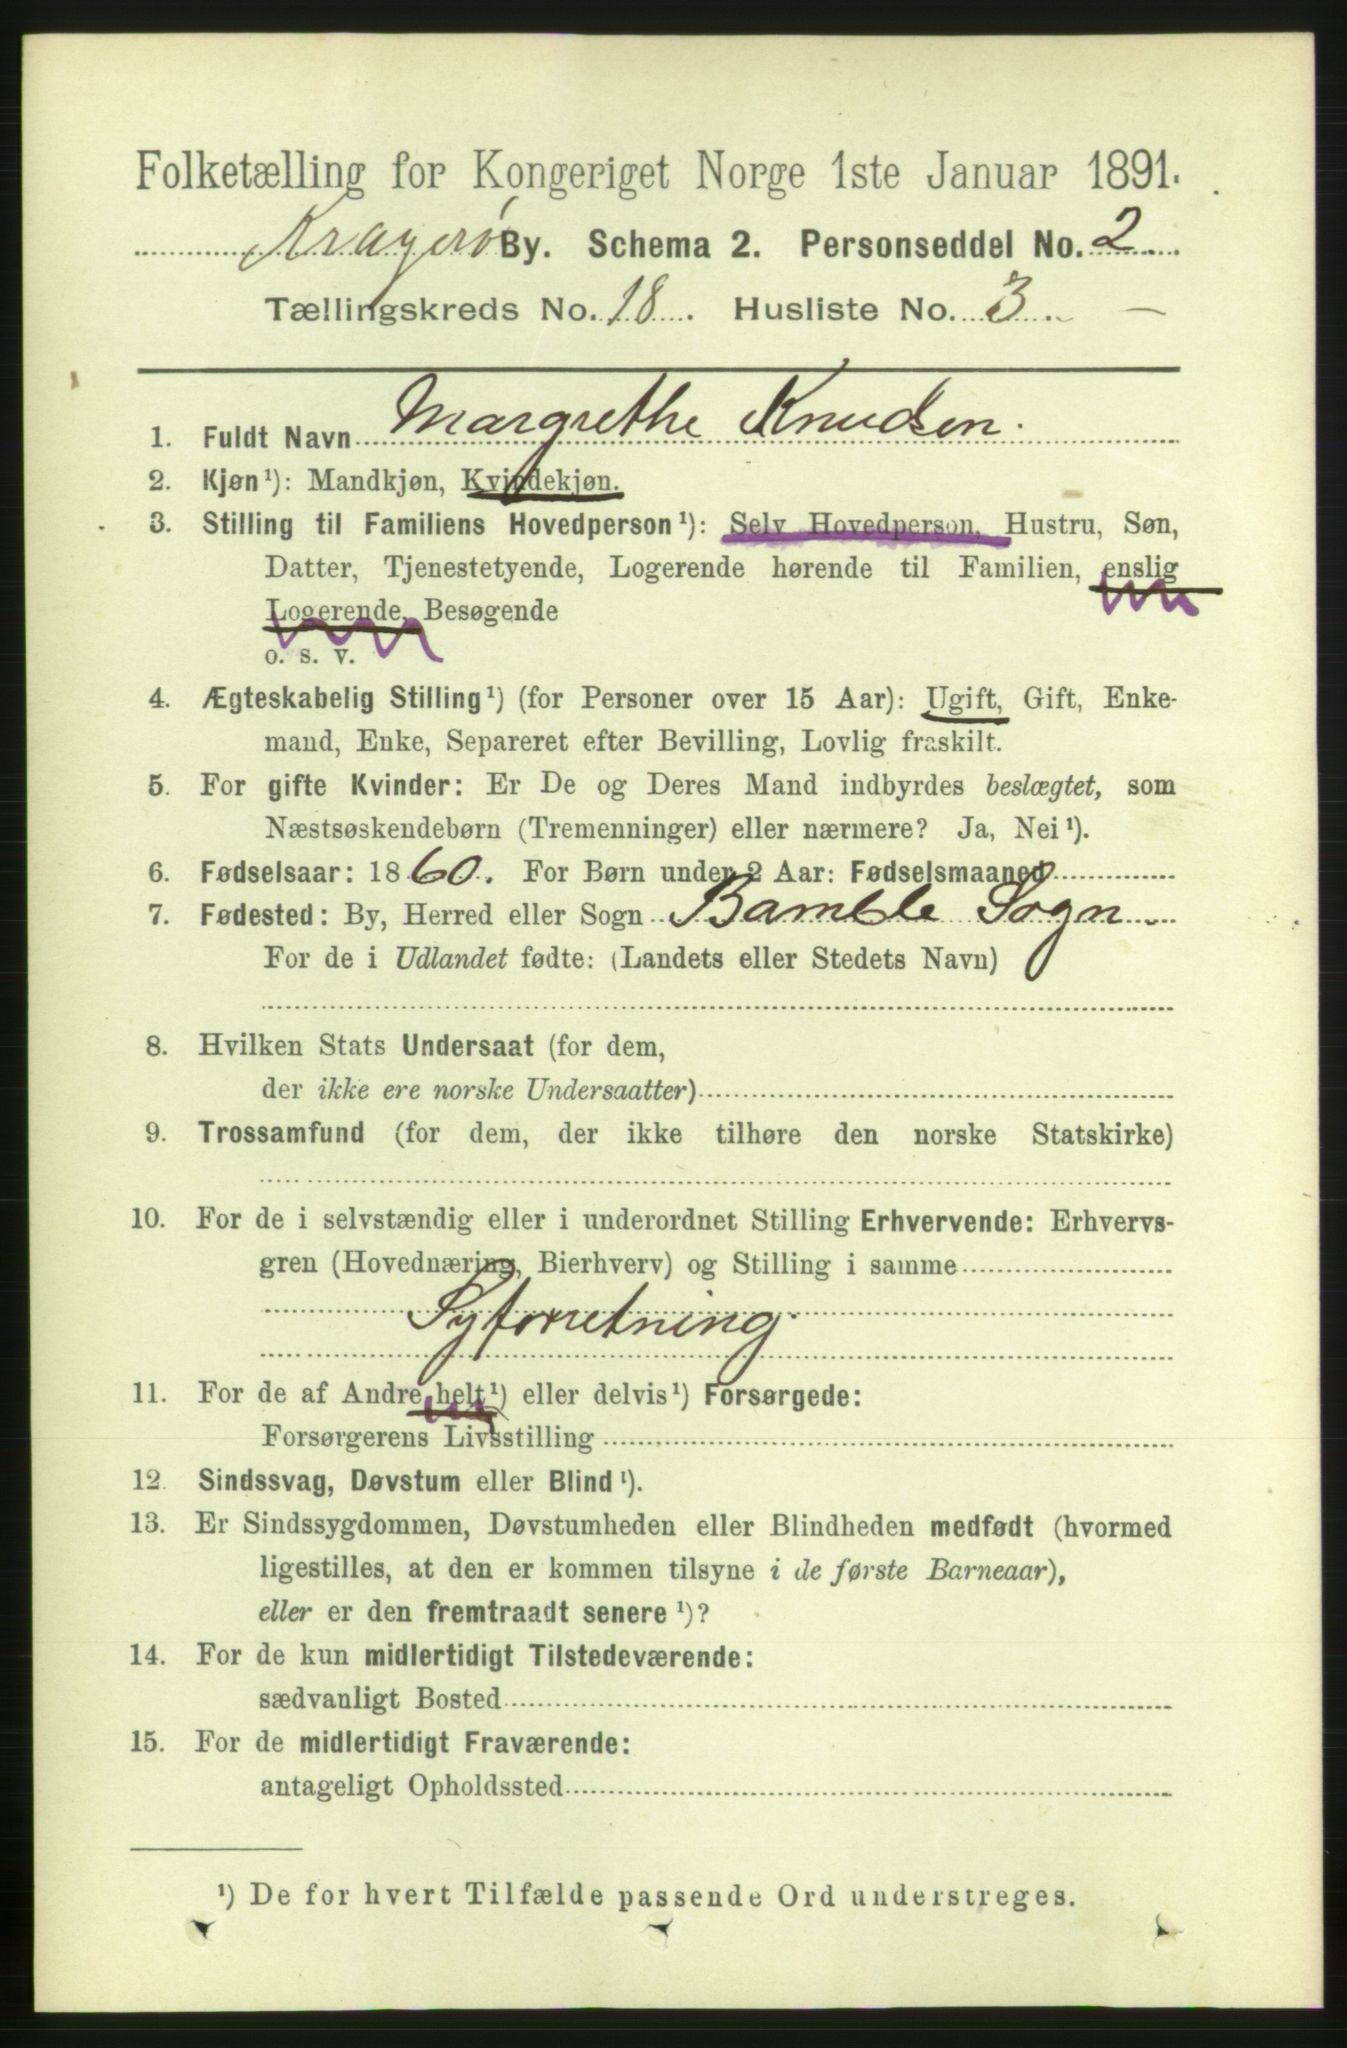 Folketælling for Kongeriget Norge 1ste Januar 1891.
Kragerö By. Schema 2. Personseddel No. 2
Tællingskreds No. 18. Husliste No. 3.
1. Fuldt Navn Margrethe Knudsen.
2. Kjøn¹): Mandkjøn, Kvindekjøn.
3. Stilling til Familiens Hovedperson¹): Selv Hovedperson, Hustru, Søn,
Datter, Tjenestetyende, Logerende hørende til Familien, enslig
Logerende, Besøgende
o. s. v.
4. Ægteskabelig Stilling¹) (for Personer over 15 Aar): Ugift, Gift, Enke-
mand, Enke, Separeret efter Bevilling, Lovlig fraskilt.
5. For gifte Kvinder: Er De og Deres Mand indbyrdes beslægtet, som
Næstsøskendebørn (Tremenninger) eller nærmere? Ja, Nei¹).
6. Fødselsaar: 1860. For Børn under 2 Aar: Fødselsmaaned
7. Fødested: By, Herred eller Sogn Bamble Sogn
For de i Udlandet fødte: (Landets eller Stedets Navn)
8. Hvilken Stats Undersaat (for dem,
der ikke ere norske Undersaatter)
9. Trossamfund (for dem, der ikke tilhøre den norske Statskirke)
10. For de i selvstændig eller i underordnet Stilling Erhvervende: Erhvervs-
gren (Hovednæring, Bierhverv) og Stilling i samme
Syforretning.
11. For de af Andre helt¹) eller delvis¹) Forsørgede:
Forsørgerens Livsstilling
12. Sindssvag, Døvstum eller Blind¹).
13. Er Sindssygdommen, Døvstumheden eller Blindheden medfødt (hvormed
ligestilles, at den er kommen tilsyne i de første Barneaar),
eller er den fremtraadt senere¹)?
14. For de kun midlertidigt Tilstedeværende:
sædvanligt Bosted
15. For de midlertidigt Fraværende:
antageligt Opholdssted
¹) De for hvert Tilfælde passende Ord understreges.